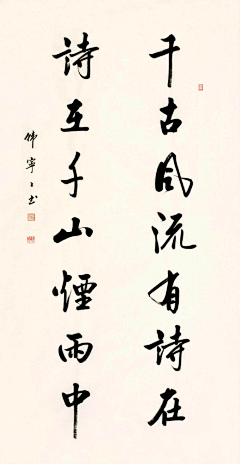 千古風流有詩在
詩在千山煙雨中